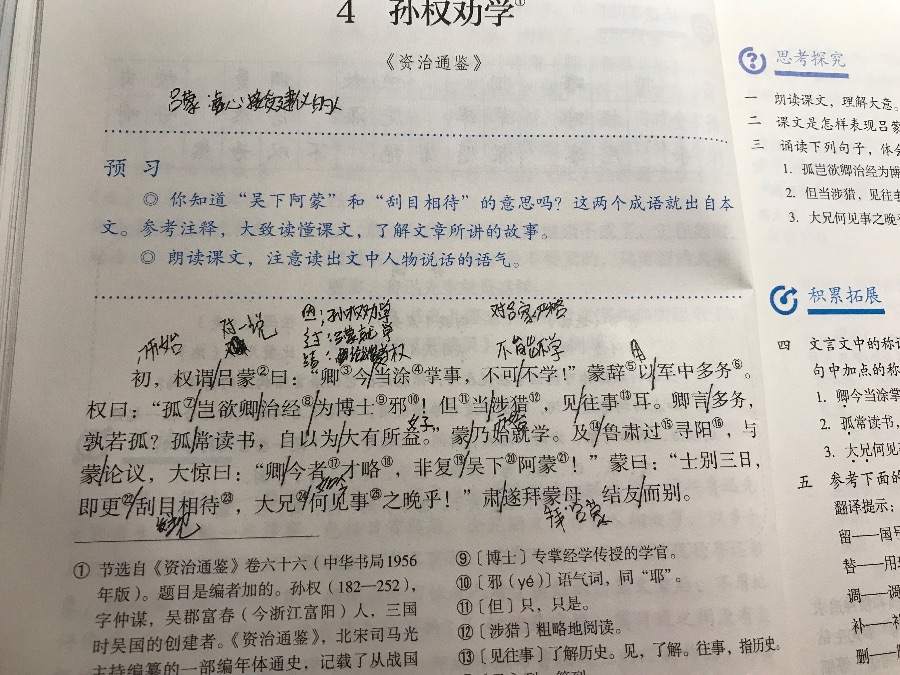 4 孙权劝学①
《资治通鉴》
吕蒙 虚心接受建议的人
预 习
◎ 你知道“吴下阿蒙”和“刮目相待”的意思吗？这两个成语就出自本
文。参考注释，大致读懂课文，了解文章所讲的故事。
◎ 朗读课文，注意读出文中人物说话的语气。
因：孙权劝学
对吕蒙严格
开始
对…说
不能不学
用
初，权谓吕蒙②曰：“卿③今当涂④掌事，不可不学！”蒙辞⑤以军中多务⑥。
权曰：“孤⑦岂欲卿治经⑧为博士⑨邪⑩！但⑪当涉猎⑫，见往事⑬耳。卿言多务，
孰若孤？孤常读书，自以为大有所益。”蒙乃始就学。及⑭鲁肃过⑮寻阳⑯，与
蒙论议，大惊曰：“卿今者⑰才略⑱，非复⑲吴下⑳阿蒙㉑！”蒙曰：“士别三日，
即更㉒刮目相待㉓，大兄㉔何见事㉕之晚乎！”肃遂拜蒙母，结友而别。
① 节选自《资治通鉴》卷六十六（中华书局1956
年版）。题目是编者加的。孙权（182—252），
字仲谋，吴郡富春（今浙江富阳）人，三国
时吴国的创建者。《资治通鉴》，北宋司马光
主持编纂的一部编年体通史，记载了从战国
⑨〔博士〕专掌经学传授的学官。
⑩〔邪（yé）〕语气词，同“耶”。
⑪〔但〕只，只是。
⑫〔涉猎〕粗略地阅读。
⑬〔见往事〕了解历史。见，了解。往事，指历史。
思考探究
一 朗读课文，理解大意。
二 课文是怎样表现吕蒙
三 诵读下列句子，体会
1. 孤岂欲卿治经为博
2. 但当涉猎，见往事
3. 大兄何见事之晚
积累拓展
四 文言文中的称谓
句中加点的称
1. 卿今当涂掌
2. 孤常读书，
3. 大兄何见事
五 参考下面的
翻译提示：
留——国号
替——用
调——调
补——补
删——删